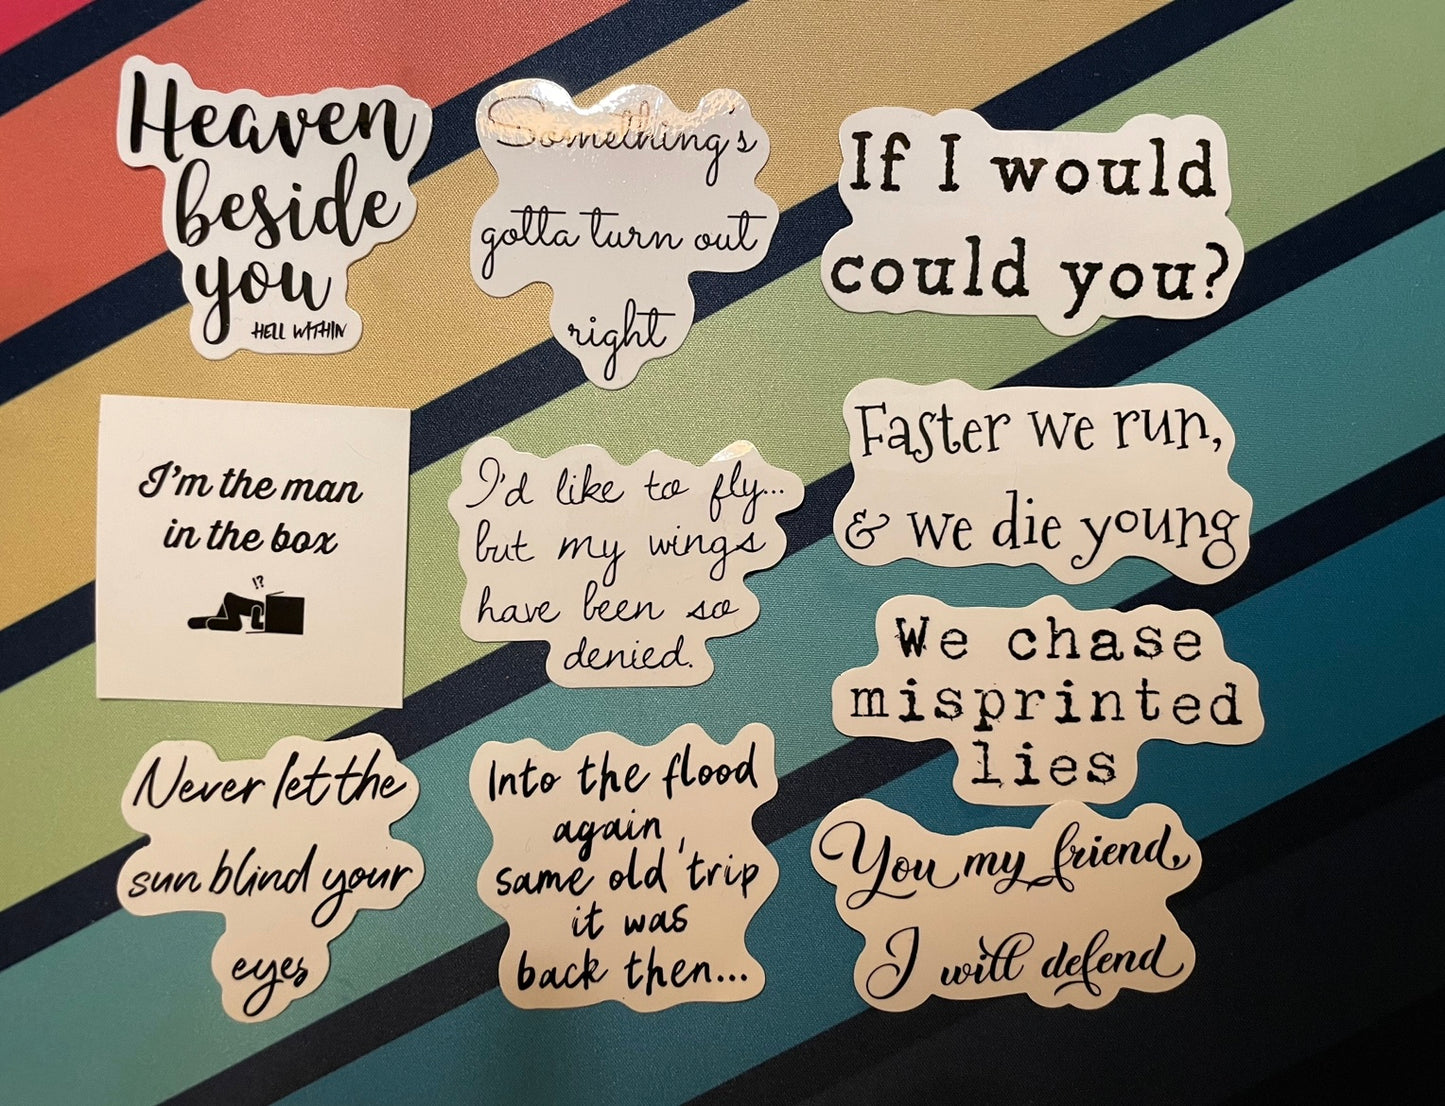 Heaven
beside
you
HELL WITHIN
Something's
gotta turn out
right
If I would
could you?
I'm the man
in the box
!?
I'd like to fly...
but my wings
have been so
denied.
Faster we run,
& we die young
We chase
misprinted
lies
Never let the
sun blind your
eyes
Into the flood
again,
same old trip
it was
back then...
You my friend,
I will defend